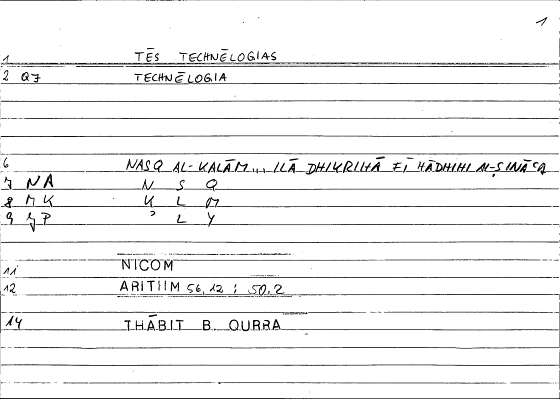 1
1 TĒS TECHNĒLOGIAS
2 Q7 TECHNĒLOGIA
6 NASQ AL-KALĀM... ILĀ DHIKRIHĀ FĪ HĀDHIHI AL-ṢINĀʿA
7 NA N S Q
8 MK K L M
9 JP ʾ L Y
11 NICOM
12 ARITHM 56,12 ; 50,2
14 THĀBIT B. QURRA